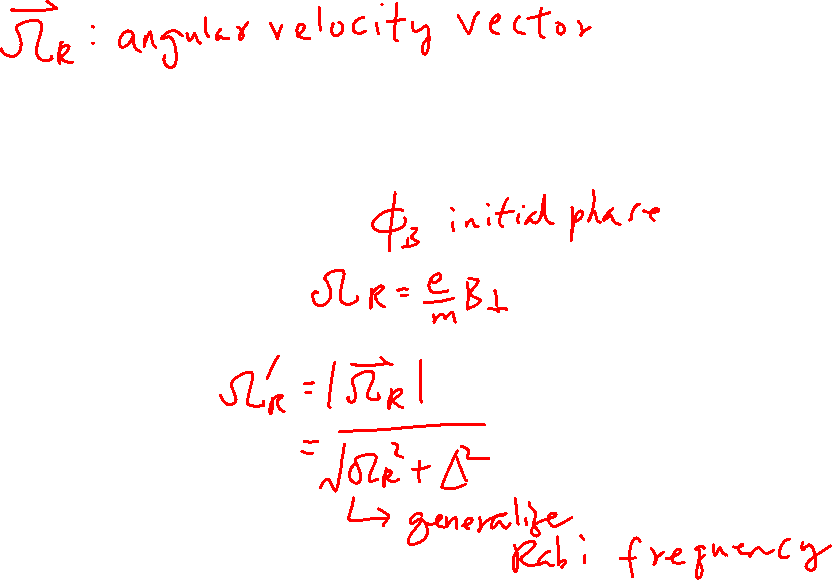 Ω⃗_R : angular velocity vector
ϕ_B initial phase
Ω_R = e/m B_⊥
Ω'_R = |Ω⃗_R|
= √(Ω_R² + Δ²)
↳ generalize
Rabi frequency